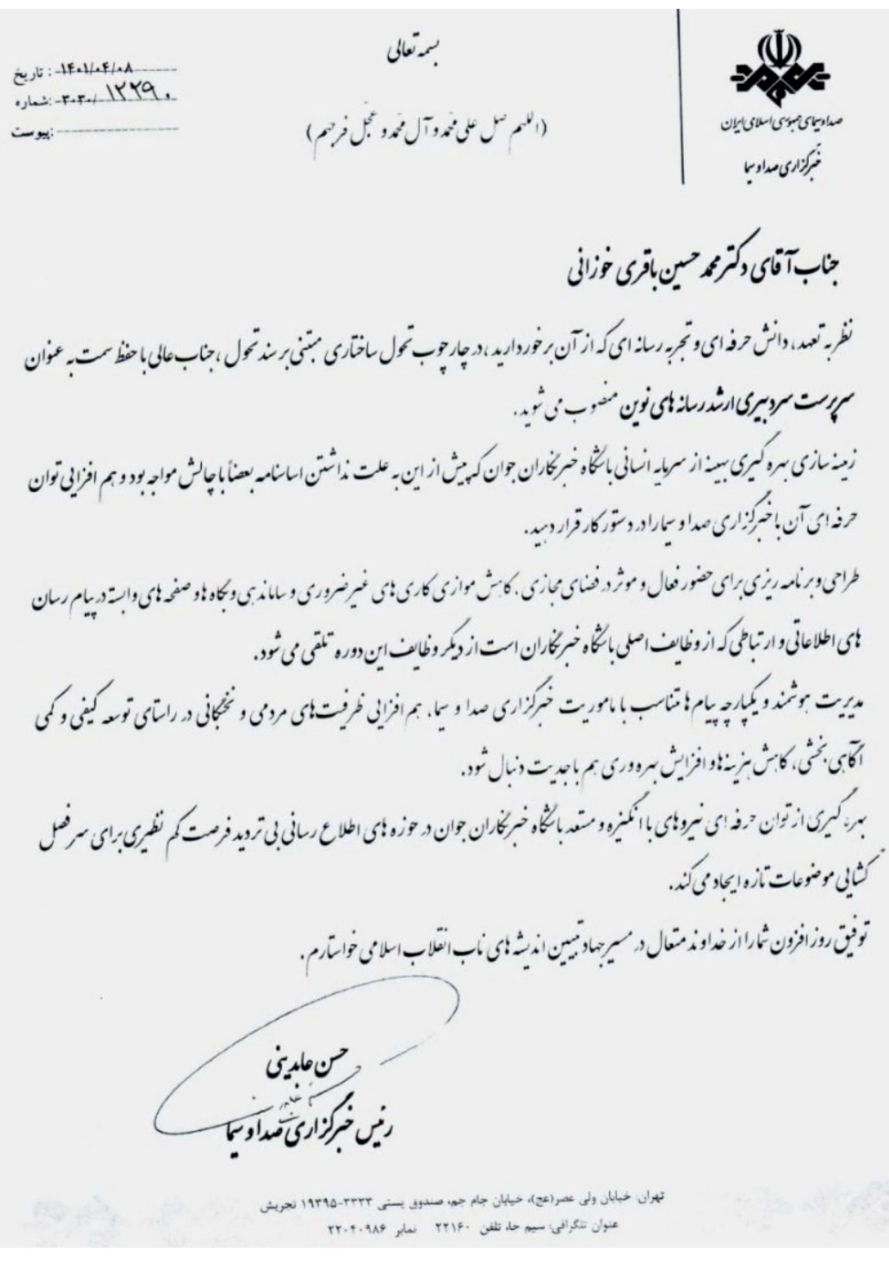 صدا و سیمای جمهوری اسلامی ایران
خبرگزاری صدا و سیما
بسمه تعالی
(اللهم صل علی محمد و آل محمد و عجل فرجهم)
تاریخ: ۱۴۰۱/۰۴/۰۸
شماره: ۳۰۳۰/۱۲۲۹۰
پیوست:
جناب آقای دکتر محمد حسین باقری خوزانی
نظر به تعهد، دانش حرفه ای و تجربه رسانه ای که از آن برخوردارید، در چارچوب تحول ساختاری مبتنی بر سند تحول، جناب عالی با حفظ سمت به عنوان
سرپرست سردبیری ارشد رسانه های نوین منصوب می شوید.
زمینه سازی بهره گیری بهینه از سرمایه انسانی باشگاه خبرنگاران جوان که پیش از این به علت نداشتن اساسنامه بعضاً با چالش مواجه بود و هم افزایی توان
حرفه ای آن با خبرگزاری صدا و سیما را در دستور کار قرار دهید.
طراحی و برنامه ریزی برای حضور فعال و موثر در فضای مجازی، کاهش موازی کاری های غیرضروری و ساماندهی وبگاه ها و صفحه های وابسته در پیام رسان
های اطلاعاتی و ارتباطی که از وظایف اصلی باشگاه خبرنگاران است از دیگر وظایف این دوره تلقی می شود.
مدیریت هوشمند و یکپارچه پیام ها متناسب با ماموریت خبرگزاری صدا و سیما، هم افزایی ظرفیت های مردمی و نخبگانی در راستای توسعه کیفی و کمی
آگاهی بخشی، کاهش هزینه ها و افزایش بهره وری هم با جدیت دنبال شود.
بهره گیری از توان حرفه ای نیروهای با انگیزه و مستعد باشگاه خبرنگاران جوان در حوزه های اطلاع رسانی بی تردید فرصت کم نظیری برای سرفصل
گشایی موضوعات تازه ایجاد می کند.
توفیق روز افزون شما را از خداوند متعال در مسیر جهاد تبیین اندیشه های ناب انقلاب اسلامی خواستارم.
حسن عابدینی
رئیس خبرگزاری صدا و سیما
تهران: خیابان ولی عصر(عج)، خیابان جام جم، صندوق پستی ۳۳۳۳-۱۹۳۹۵ تجریش
عنوان تلگرافی: سیم جا، تلفن ۲۲۱۶۰ نمابر ۲۲۰۴۰۹۸۶